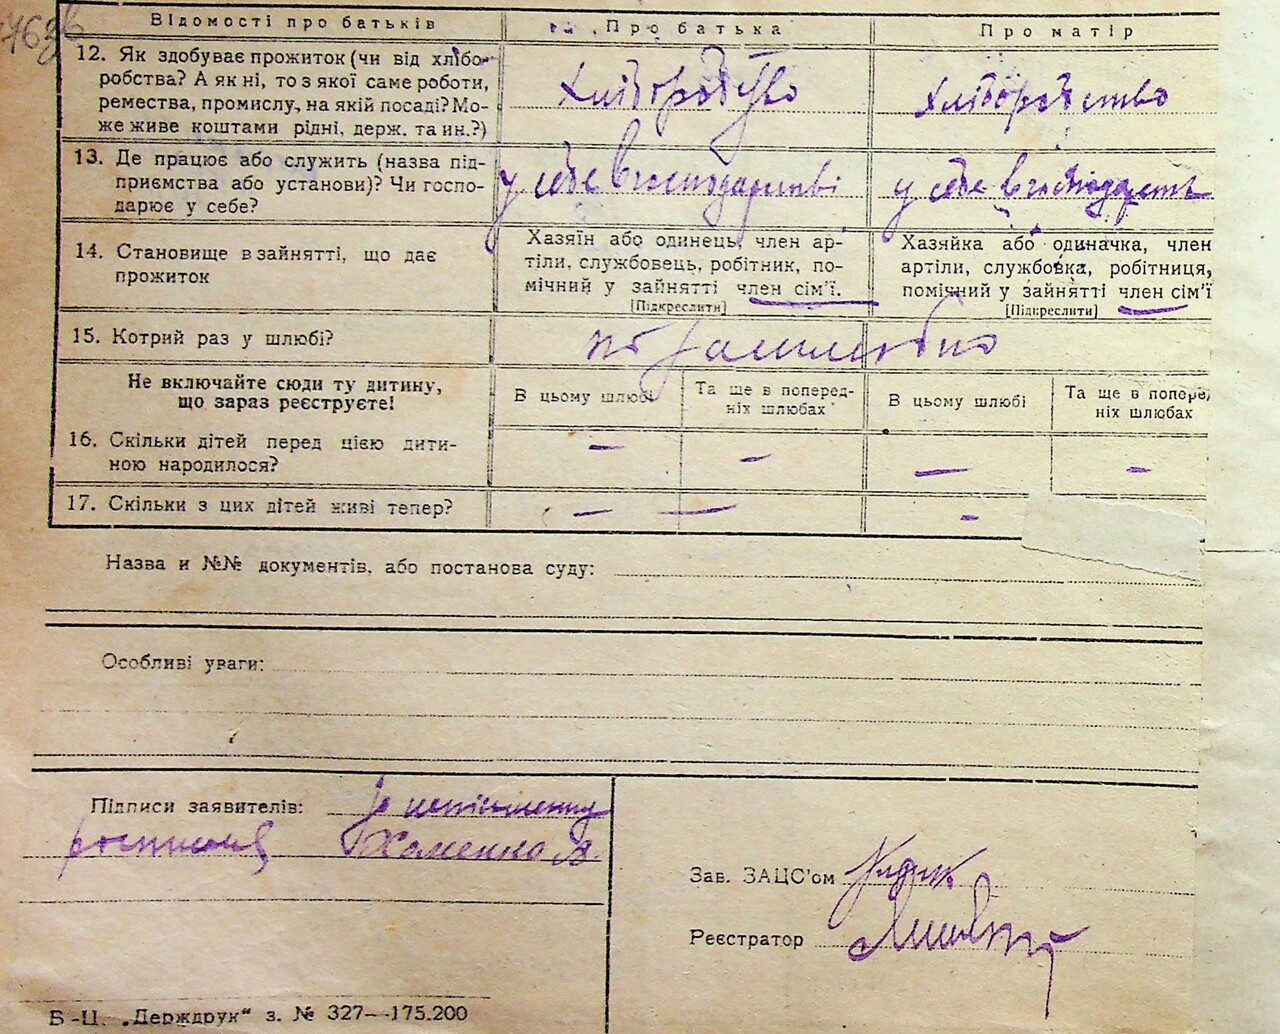 763
Відомості про батьків
Про батька
Про матір
12. Як здобуває прожиток (чи від хлібо-
робства? А як ні, то з якої саме роботи,
ремества, промислу, на якій посаді? Мо-
же живе коштами рідні, держ. та ин.?)
Хліборобство
Хліборобство
13. Де працює або служить (назва під-
приємства або установи)? Чи госпо-
дарює у себе?
у себе в господарстві
у себе в господарств
14. Становище в зайнятті, що дає
прожиток
Хазяїн або одинець, член ар-
тіли, службовець, робітник, по-
мічний у зайнятті член сім'ї.
[Підкреслити]
Хазяйка або одиначка, член
артіли, службовка, робітниця,
помічний у зайнятті член сім'ї
[Підкреслити]
15. Котрий раз у шлюбі?
Не включайте сюди ту дитину,
що зараз реєструєте!
В цьому шлюбі
Та ще в поперед-
ніх шлюбах
В цьому шлюбі
Та ще в попере
ніх шлюбах
16. Скільки дітей перед цією дити-
ною народилося?
— — — —
17. Скільки з цих дітей живі тепер?
— — —
Назва и №№ документів, або постанова суду:
Особливі уваги:
Підписи заявителів: За неписьменну
Хоменко
Зав. ЗАЦС'ом
Реєстратор
Б.-Ц. „Держдрук" з. № 327—175.200